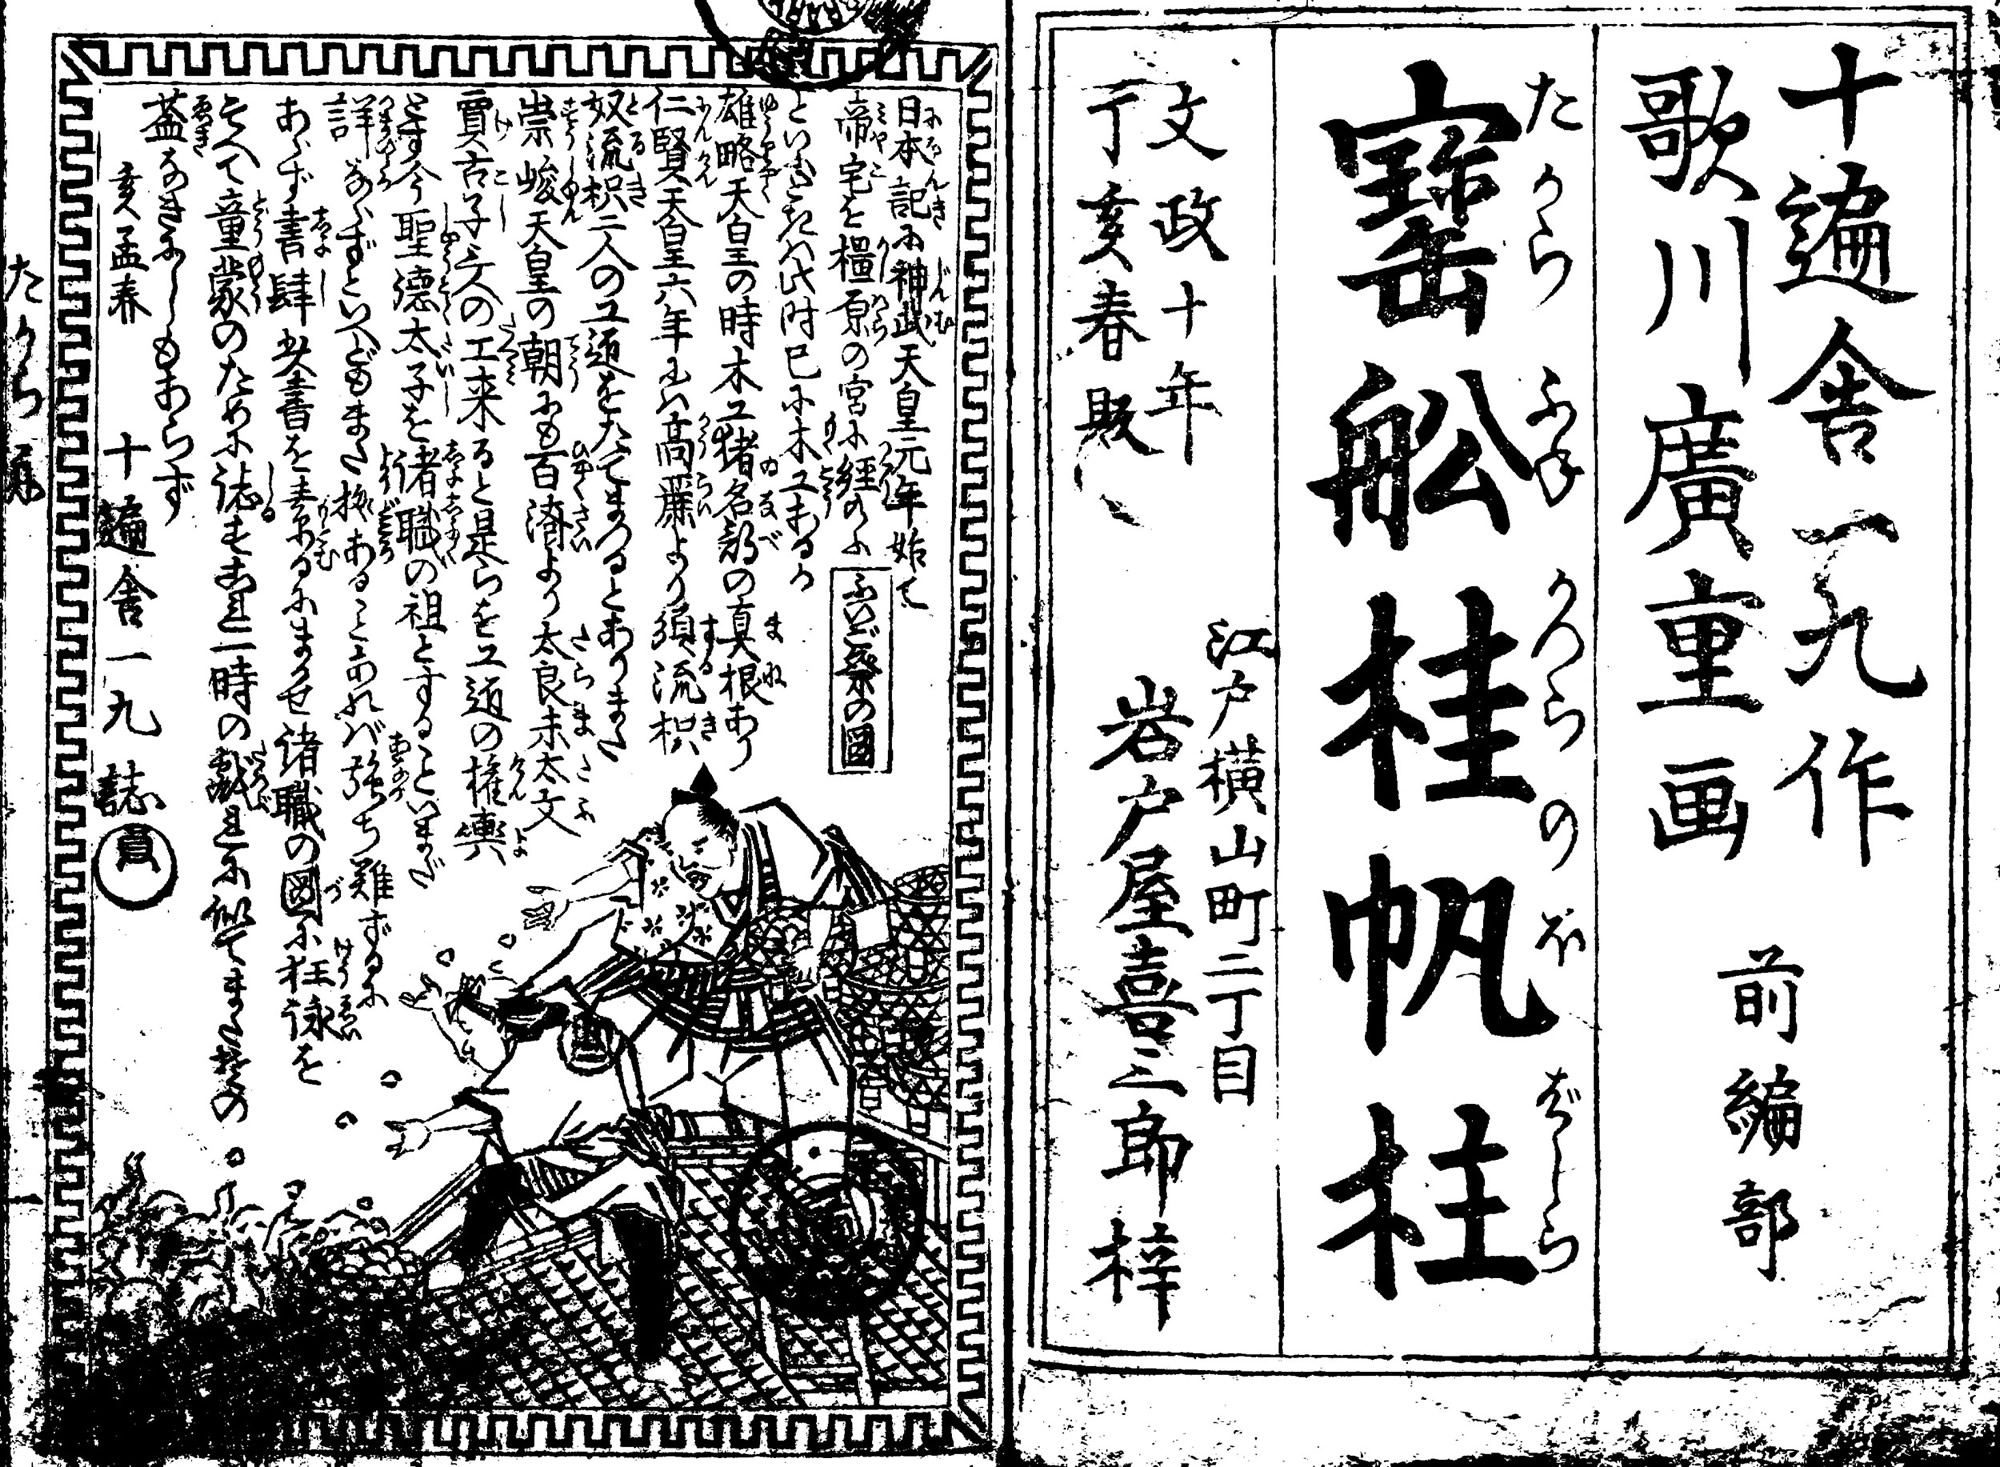 十遍舎一九作
歌川廣重画
前編部
たからふねかつらのほばしら
寳舩桂帆柱
文政十年
丁亥春版
江戸横山町二丁目
岩戸屋喜三郎梓
日本記に神武天皇元年始て
帝宅を橿原の宮に経給ふ
ふいご祭の圖
雄略天皇の時木工猪名部の真根あり
仁賢天皇六年には高麗より須流枳
奴流枳二人の工道をたてまつるとありまた
崇峻天皇の朝にも百済より太良未太文
賈古子三人の工来ると是らを工道の権輿
とす今聖徳太子を諸職の祖とすることいまだ
詳ならずといへどもまた拠あることあれば強ち難ずるに
あらず書肆此書を乗るにまかせ諸職の図に狂詠を
そへて童蒙のために誌す是一時の戯れに似てまた其の
益なきにしもあらず
亥孟春
十遍舎一九誌
たから舩
一